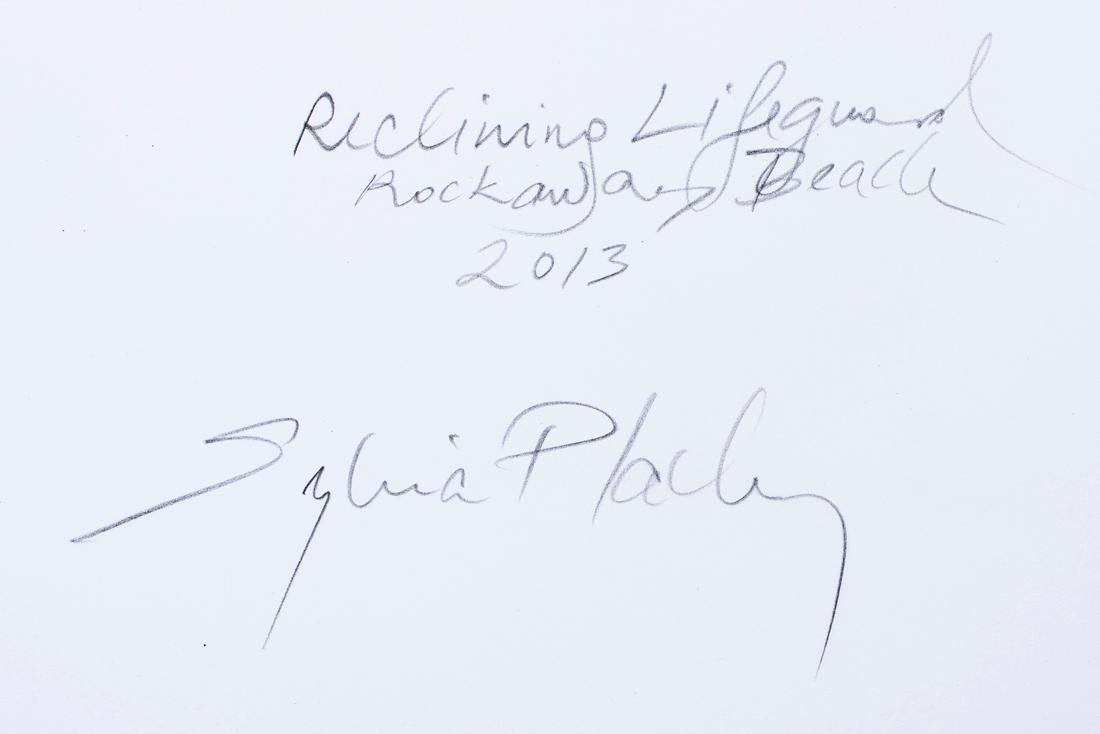 Reclining Lifeguard
Rockaway Beach
2013
Sylvia Plachy